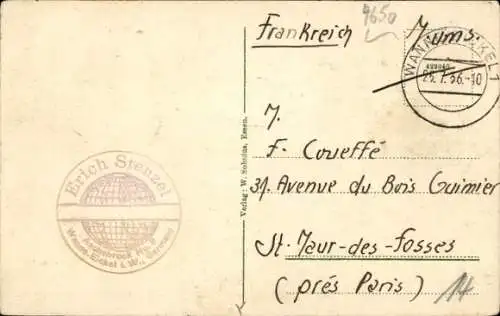 4650
Frankreich
WANNE-EICKEL 1
25.7.36.-10
Verlag: W. Sobolus, Essen.
Erich Stenzel
Wanne-Eickel i. W., Germany
F. Coueffé
31 Avenue du Bois Guimier
St. Maur-des-Fosses
(prés Paris)
14